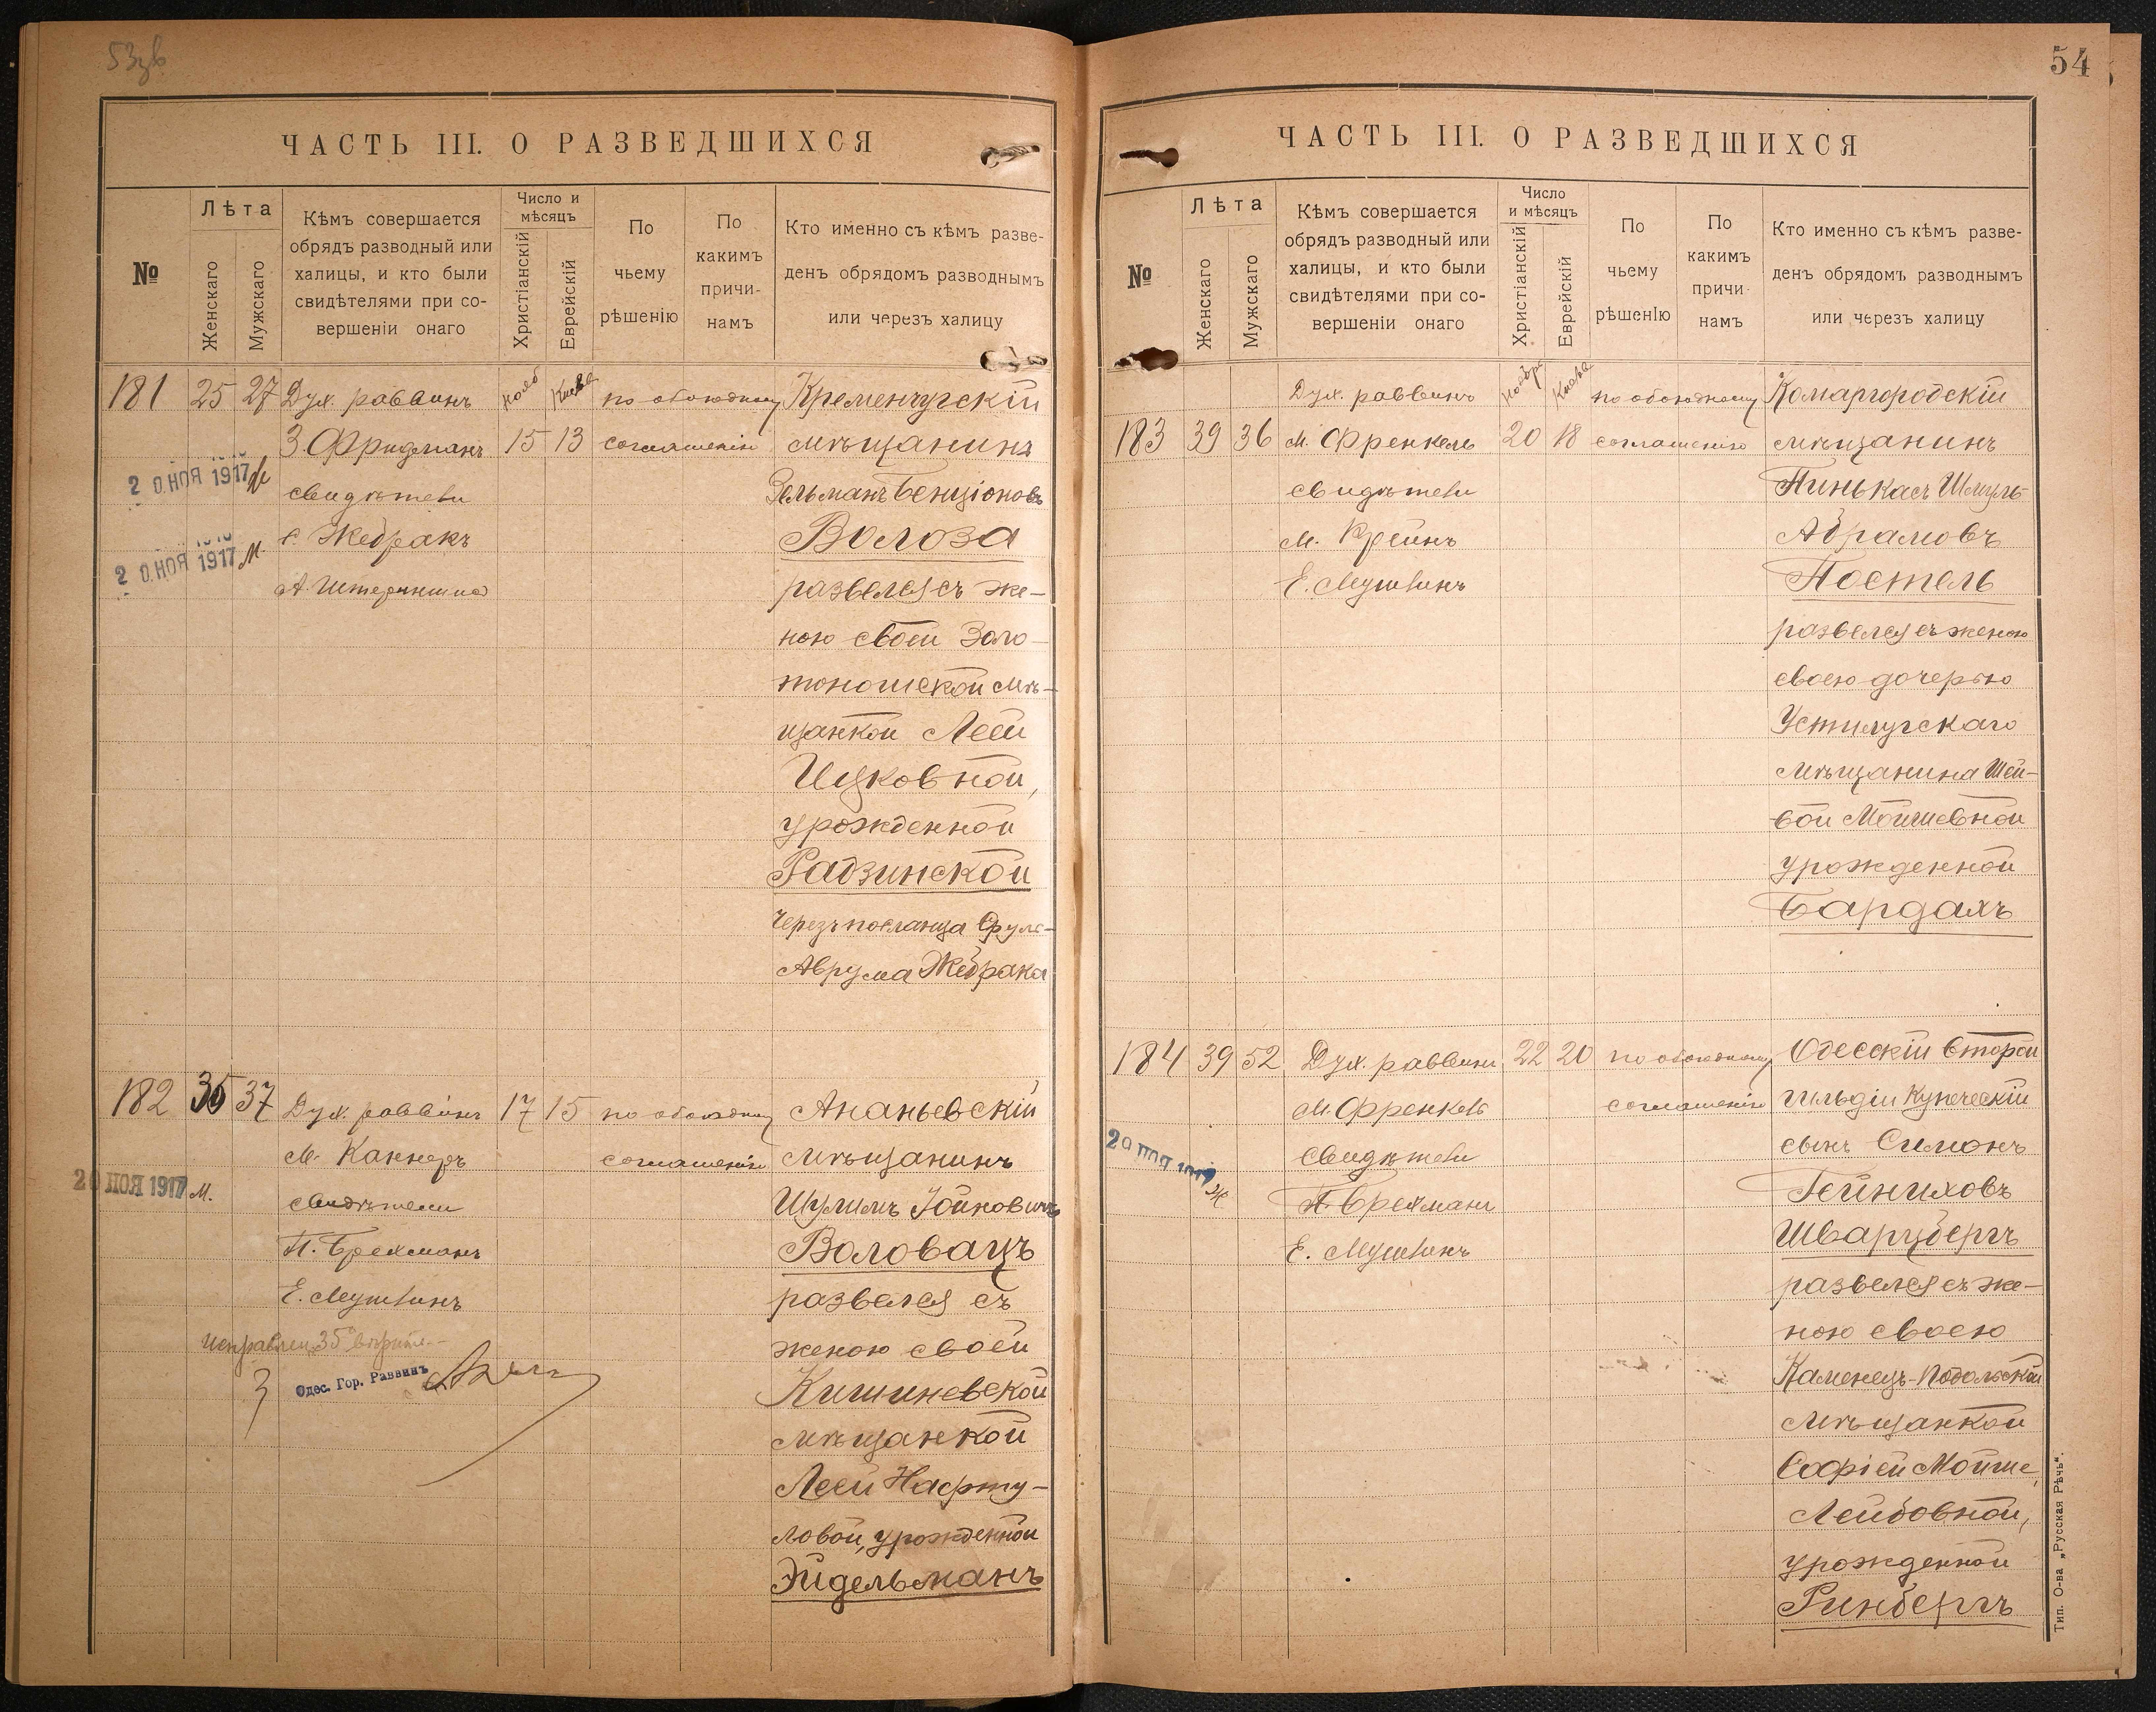 54
ЧАСТЬ III. О РАЗВЕДШИХСЯ
№
Лѣта
Женскаго
Мужскаго
Кѣмъ совершается
обрядъ разводный или
халицы, и кто были
свидѣтелями при со-
вершеніи онаго
Число и
мѣсяцъ
Христіанскій
Еврейскій
По
чьему
рѣшенію
По
какимъ
причи-
намъ
Кто именно съ кѣмъ разве-
денъ обрядомъ разводнымъ
или черезъ халицу
181 25 27 Дух. раввинъ по обоюдному Кременчугскій
З. Фридманъ 15 13 соглашенію мѣщанинъ
2 0 НОЯ 1917
свидѣтели Зельманъ Бенціоновъ
Жебракъ Волоза
2 0 НОЯ 1917 М.
развелся съ же-
ною своей Золо-
тоношской мѣ-
щанкой Леей
Ицковной,
урожденной
Радзинской
черезъ посланца Сруль-
Аврума Жебрака
182 35 37 Дух. раввинъ 17 15 по обоюдному Ананьевскій
М. Каннеръ соглашенію мѣщанинъ
20 НОЯ 1917 М.
свидѣтели Шулимъ Іойновичъ
П. Брехманъ Воловацъ
Е. Мушкинъ развелся съ
женою своей
Одес. Гор. Раввинъ
Кишиневской
мѣщанкой
Леей Нафту-
ловой, урожденной
Эйдельманъ
ЧАСТЬ III. О РАЗВЕДШИХСЯ
№
Лѣта
Женскаго
Мужскаго
Кѣмъ совершается
обрядъ разводный или
халицы, и кто были
свидѣтелями при со-
вершеніи онаго
Число
и мѣсяцъ
Христіанскій
Еврейскій
По
чьему
рѣшенію
По
какимъ
причи-
намъ
Кто именно съ кѣмъ разве-
денъ обрядомъ разводнымъ
или черезъ халицу
Дух. раввинъ по обоюдному Комаргородскій
183 39 36 М. Френкель 20 18 соглашенію мѣщанинъ
свидѣтели Пинькасъ Шмуль
М. Крейнъ Абрамовъ
Е. Мушкинъ Постель
развелся съ женою
своею дочерью
Устилугскаго
мѣщанина Шей-
вой Мойшевной
урожденной
Бардахъ
184 39 52 Дух. раввинъ 22 20 по обоюдному Одесскій второй
М. Френкель соглашенію гильдіи купеческій
свидѣтели сынъ Симонъ
П. Брехманъ Гейниховъ
Е. Мушкинъ Шварцбергъ
развелся съ же-
ною своею
Каменецъ-Подольской
мѣщанкой
Софіей Мойше
Лейбовной,
урожденной
Ринбергъ
Тип. О-ва „Русская Рѣчь".